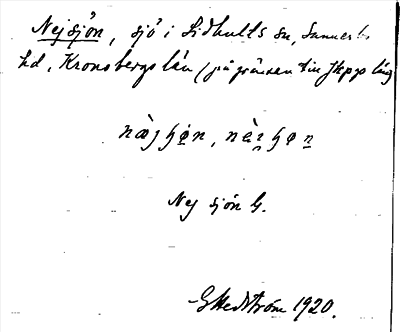 Nejsjön, sjö i Lidhults sn, Sunnerbo
hd, Kronobergs län (på gränsen till Jkpgs län)
Nej sjön G.
G Hedström 1920.